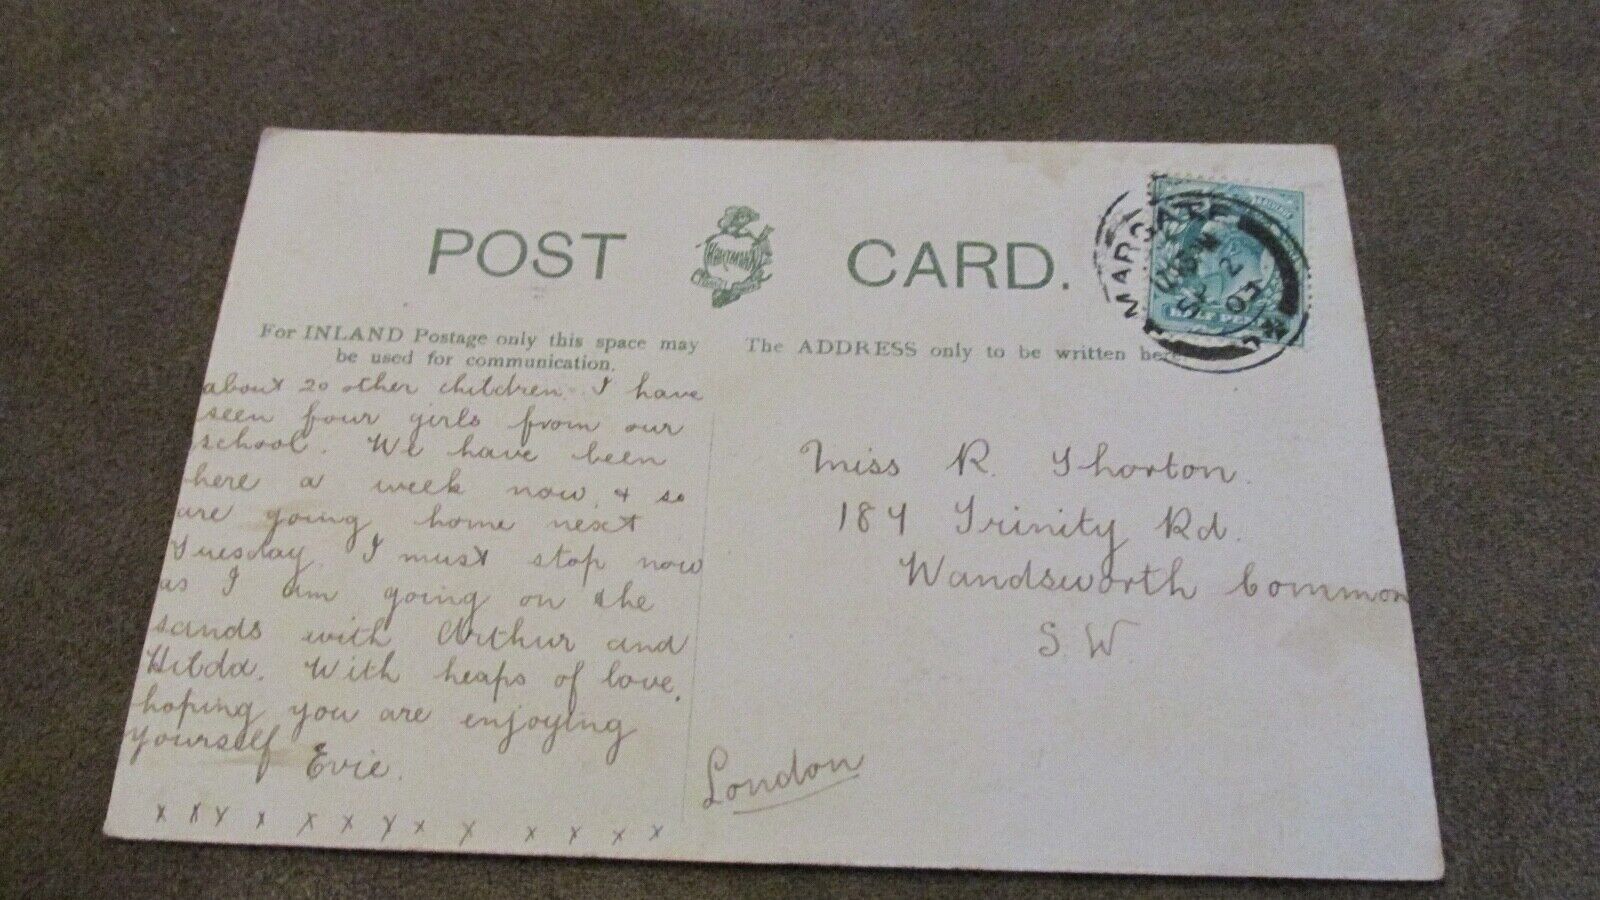 POST CARD.
HARTMANN
For INLAND Postage only this space may
be used for communication.
The ADDRESS only to be written here
MARGATE
SP 2
03
about 20 other children. I have
seen four girls from our
school. We have been
here a week now, & so
are going home next
Tuesday. I must stop now
as I am going on the
sands with Arthur and
Hilda. With heaps of love,
hoping you are enjoying
yourself Evie.
x x x x x x x x x x x x x
Miss R. Thorton.
184 Trinity Rd.
Wandsworth Common
S. W.
London